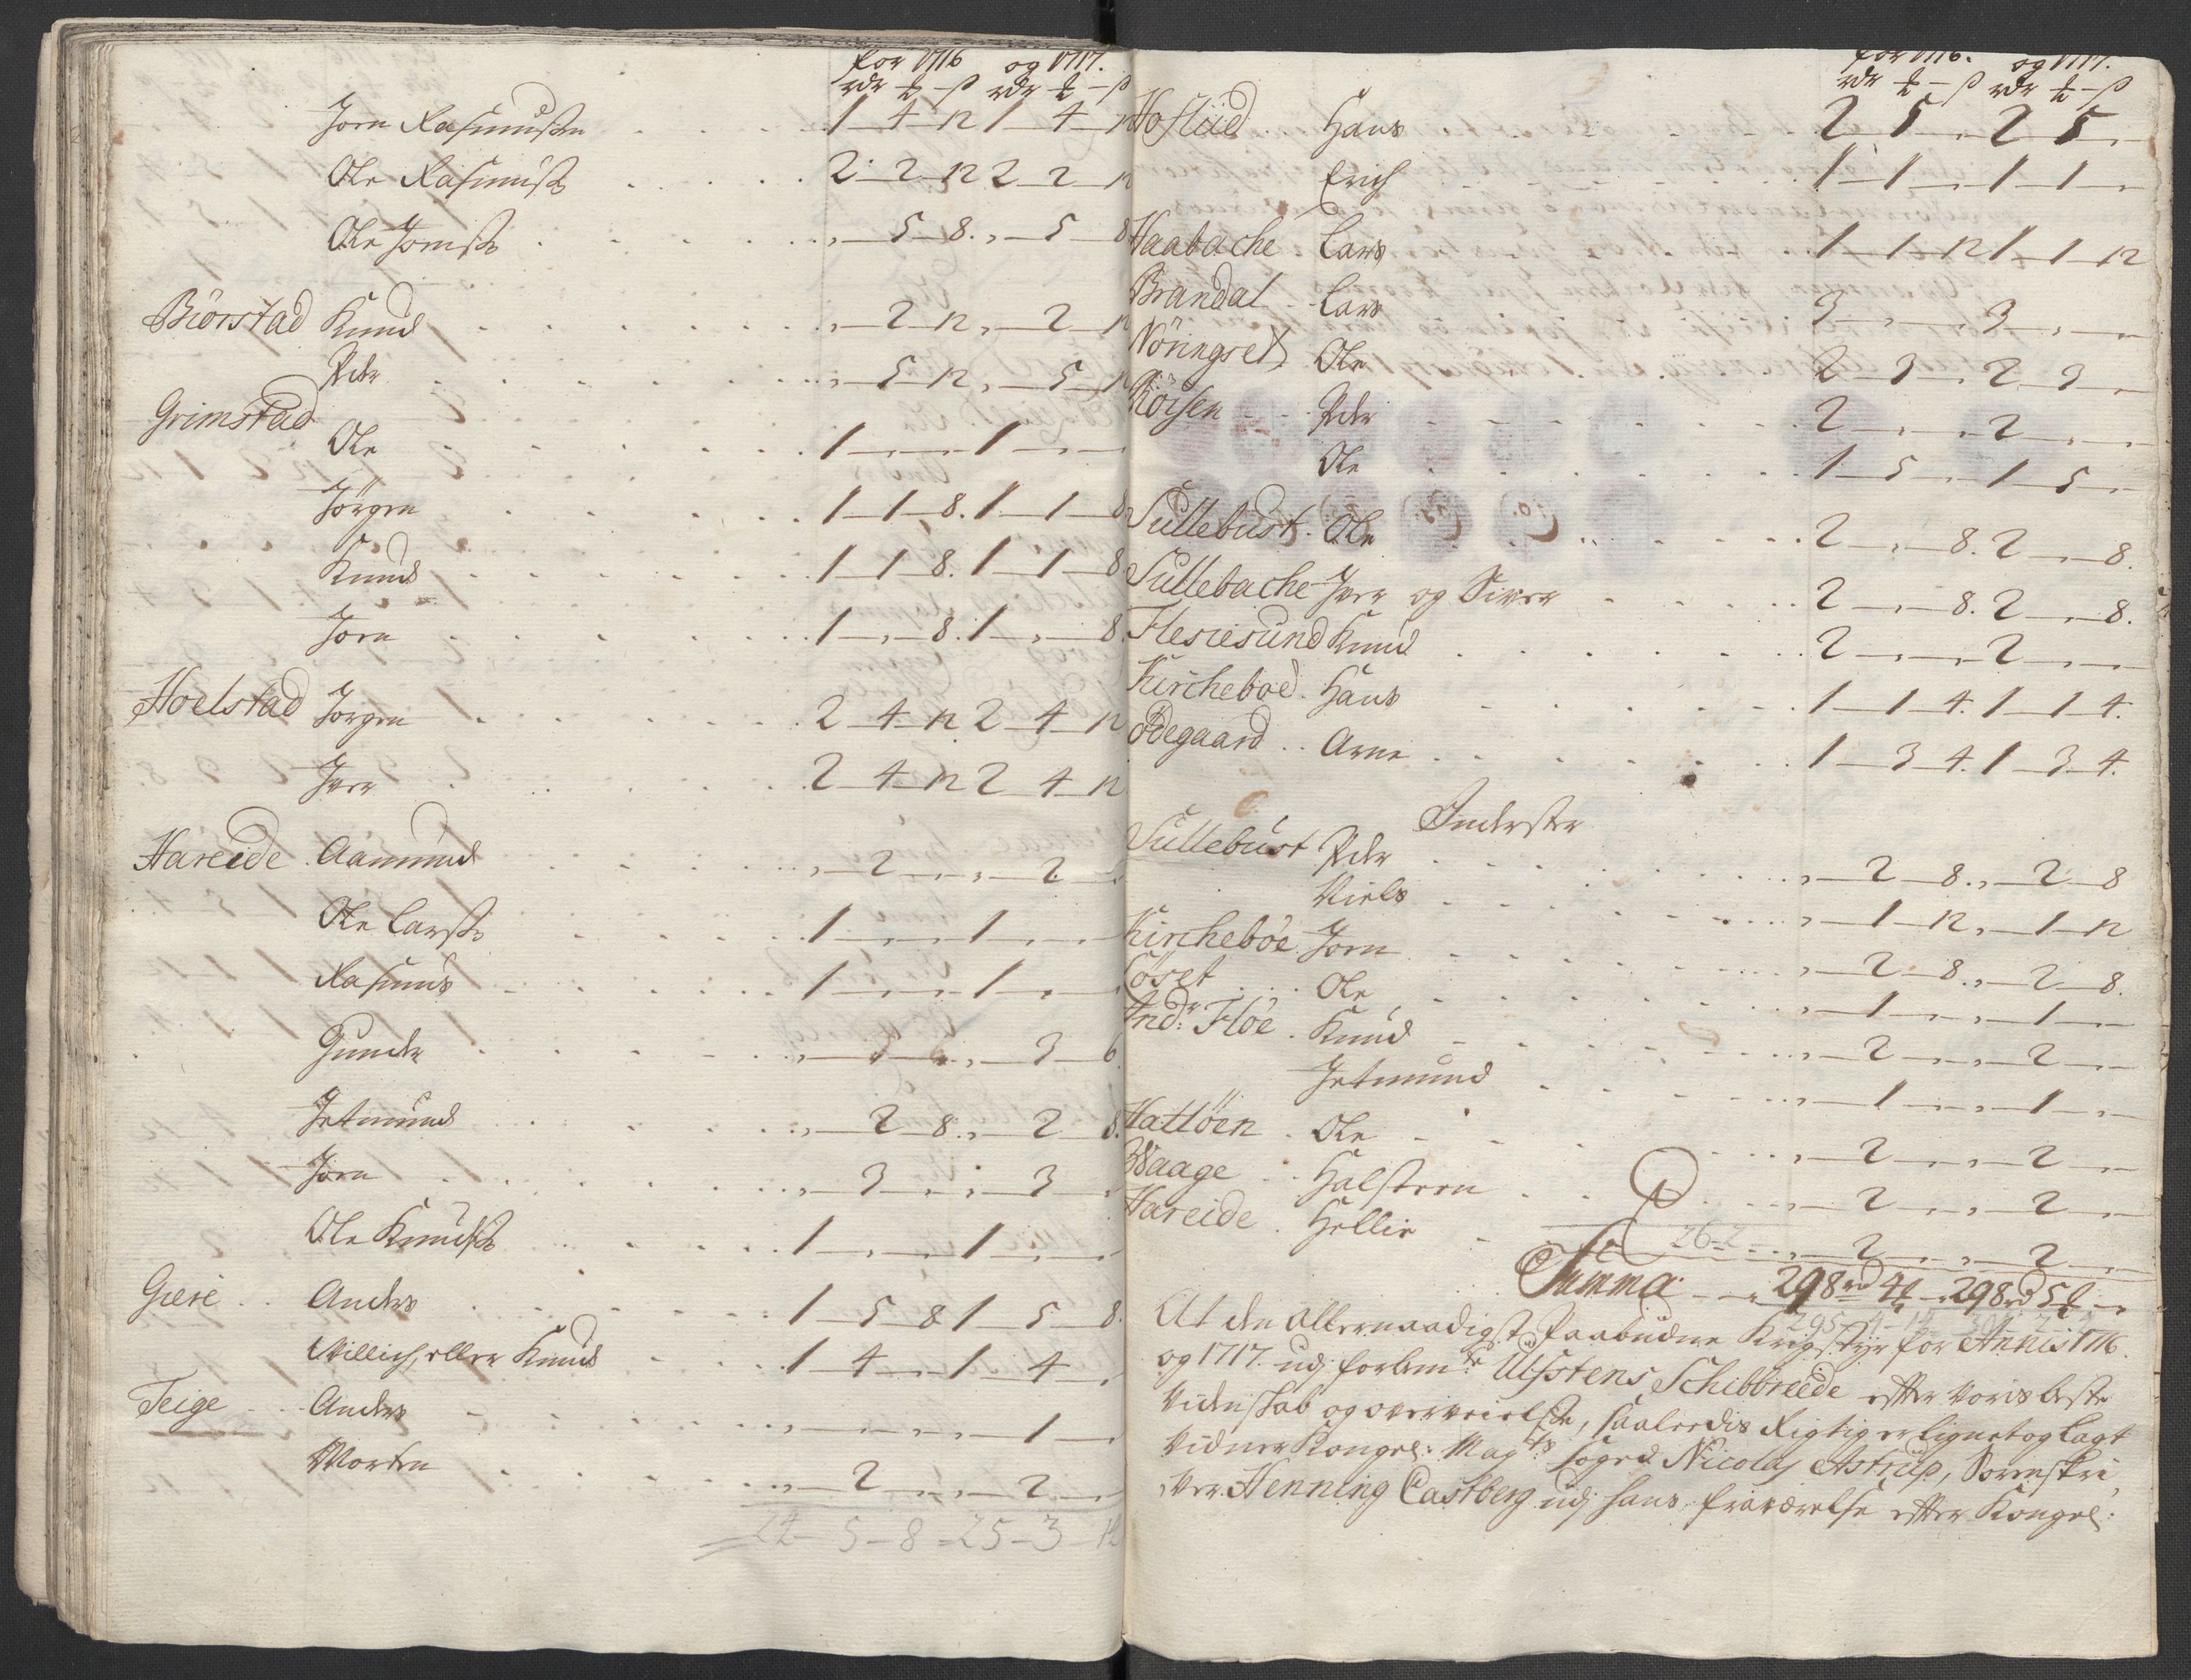 for 1716 og 1717.
rdr ½ – ß rdr ½ – ß
Jorn Rasmussen 1 – 4 – 12 1 – 4 – 12
Ole Rasmuss 2 – 2 – 12 2 – 2 – 12
Ole Jornss „ – 5 – 8. „ – 5 – 8
Biörstad Knud „ – 2 – 12 „ – 2 – 12
Peder „ – 5 – 12 „ – 5 – 12
Grimstad
Ole 1 – „ – „ 1 – „ – „
Jörgen 1 – 1 – 8. 1 – 1 – 8
Knud 1 – 1 – 8. 1 – 1 – 8
Jorn 1 – „ – 8. 1 – „ – 8.
Hoelstad Jörgen 2 – 4 – 12 2 – 4 – 12
Iver 2 – 4 – 12 2 – 4 – 12
Hareide Aamund „ – 2 – „ „ – 2 – „
Ole Larss 1 – „ – „ 1 – „ – „
Rasmus 1 – „ – „ 1 – „ – „
Gunder „ – „ – 3 – 6
Jetmund „ – 2 – 8. „ – 2 – 8.
Jorn „ – 3 – „ „ – 3 – „
Ole Knudss 1 – „ – „ 1 – „ – „
Giere Anders 1 – 5 – 8 1 – 5 – 8.
Villich, eller Knud 1 – 4 – „ 1 – 4 – „
Teige Anders „ – „ – „ „ – 1 – „
Morten „ – 2 – „ „ – 2 – „
24 – 5 – 8 – 25 – 3 – 12
for 1716. og 1717.
rdr ½ – ß rdr ½ – ß
Hoflüd Hans 2 5 „ 2 5 „
Erich 1 – 1 – „ 1 – 1 – „
Haabache Lars 1 – 1 – 12 1 – 1 – 12
Brandal Lars 3 – „ – „ 3 – „ – „
Nöringset Ole 2 – 3 – „ 2 – 3 – „
Röisen Peder 2 – „ – „ 2 – „ – „
Ole 1 – 5 – „ 1 – 5 – „
Sullebust Ole 2 – „ – 8. 2 – „ – 8.
Sullebache Iver og Siver 2 – „ – 8. 2 – „ – 8.
Flesiesund Knud 2 – „ – „ 2 – „ – „
Kircheböe Hans 1 – 1 – 4. 1 – 1 – 4.
Ødegaard Arne 1 – 3 – 4. 1 – 3 – 4.
Inderster
Sullebust Peder „ – 2 – 8. „ – 2 – 8
Niels „ – 1 – 12 „ – 1 – 12
Kircheböe Jorn „ – 2 – 8. „ – 2 – 8.
Löset Ole „ – 1 – „ „ – 1 – „
Indr: Flöe Knud „ – 2 – „ „ – 2 – „
Jetmund „ – 1 – „ „ – 1 – „
Hatlöen Ole „ – 2 – „ „ – 2 – „
Waage Halsteen „ – 2 – „ „ – 2 – „
Hareide Hellie „ – 2 – „ „ – 2 – „
26-2
Summa 298 rd 4 – 298 rd 5
At den allernaadigst Paabudne Krigstyr for Annis 1716.
og 1717. udj forbem:te Ulfstens Schibbreede efter voris beste
Videnskab og overveielse, saaledis Rigtig er lignet og lagt
Vidner Kongel: May:ts foged Nicolaj Astrup, Sorenskri
ver Henning Castberg udj hans fraværelse efter Kongel: